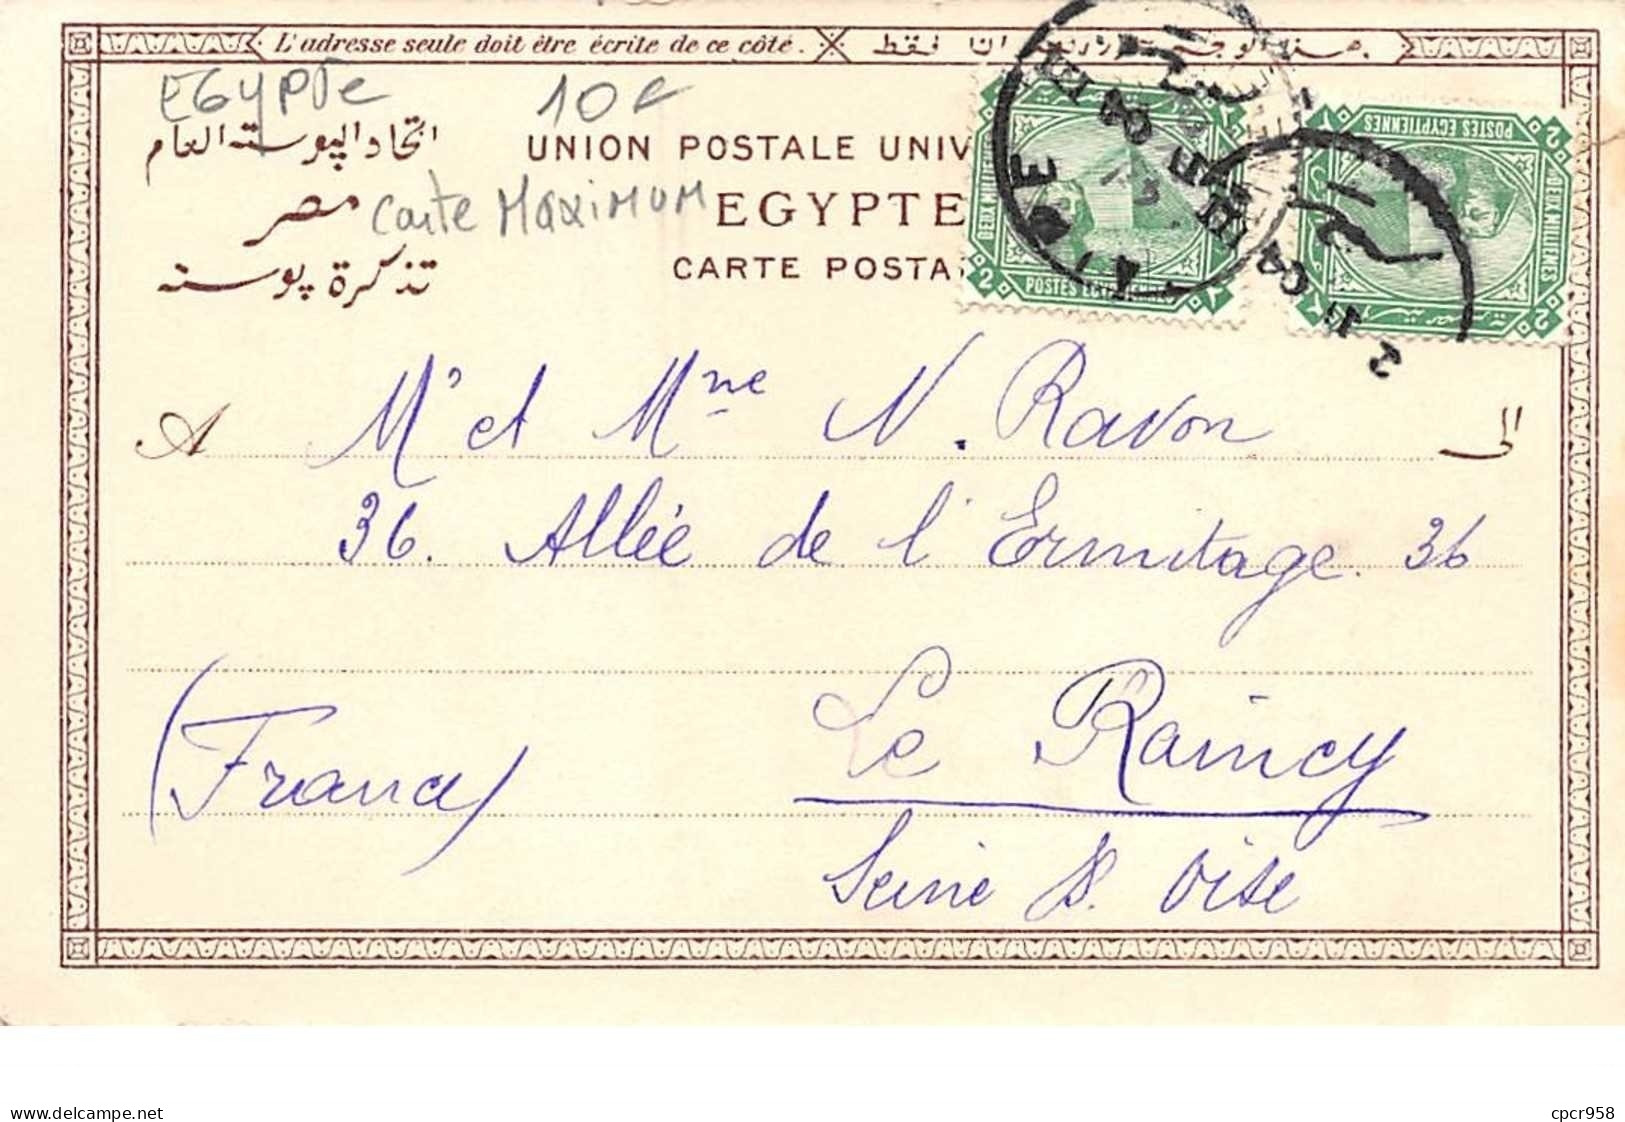 L'adresse seule doit être écrite de ce côté.
EGYPTe
10€
اتحاد البوسته العام
UNION POSTALE UNIV
Carte MaxiMUM
مصر
EGYPTE
تذكرة بوسته
CARTE POSTA
DEUX MILLIEMES
POSTES EGYPTIENNES
2
POSTES EGYPTIENNES
DEUX MILLIEMES
2
A Mr et Mme N. Ravon الى
36. Allée de l'Ermitage. 36
Le Raincy
(France)
Seine &. Oise
delcampe.net
cpcr958